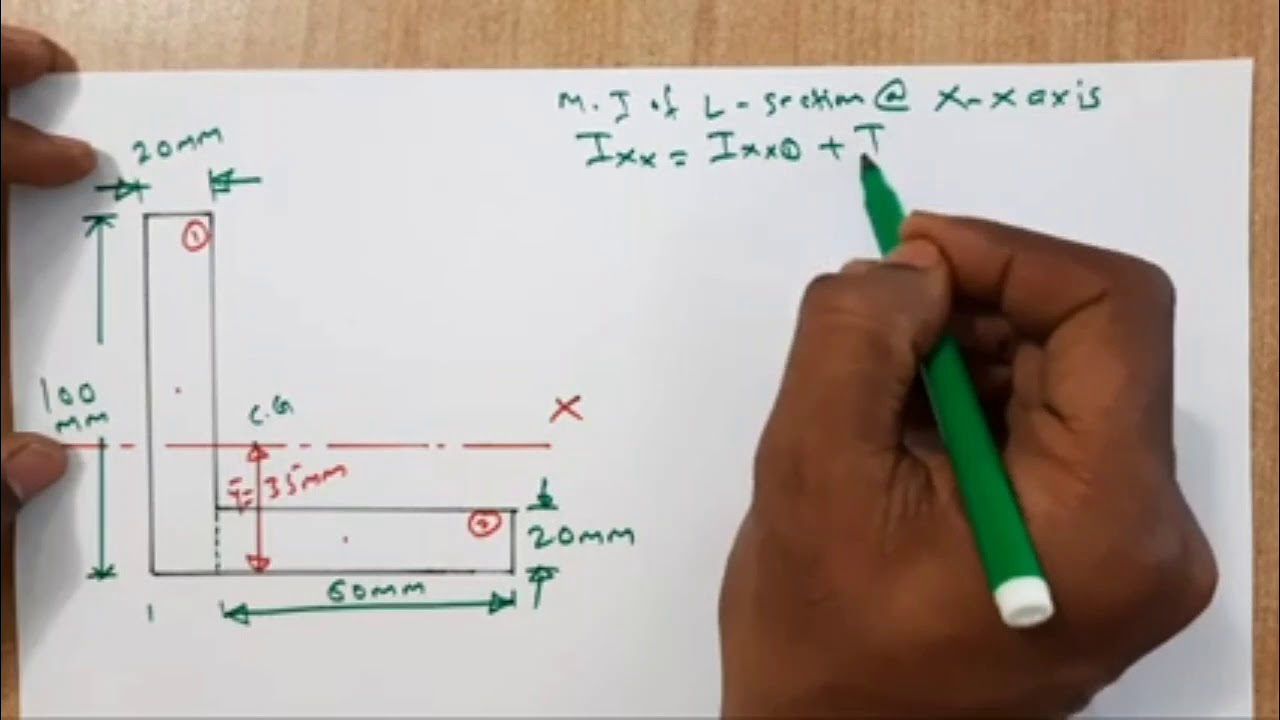 M.I of L-section @ X-X axis
Ixx = Ixx① + I
20mm
①
100
mm
C.G
X
ȳ = 35mm
②
20mm
60mm